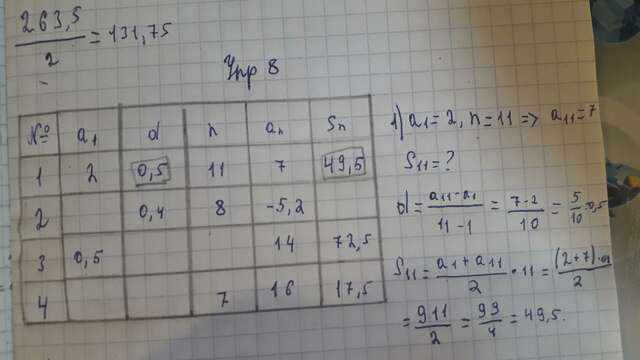 263,5
/2 = 131,75
Упр 8
№ a₁ d n aₙ Sₙ
1 2 0,5 11 7 49,5
2 0,4 8 -5,2
3 0,5 14 72,5
4 7 16 17,5
1) a₁=2, n=11 => a₁₁=7
S₁₁=?
d = a₁₁-a₁/11-1 = 7-2/10 = 5/10 = 0,5
S₁₁ = a₁+a₁₁/2 · 11 = (2+7)·11/2
= 911/2 = 99/4 = 49,5.